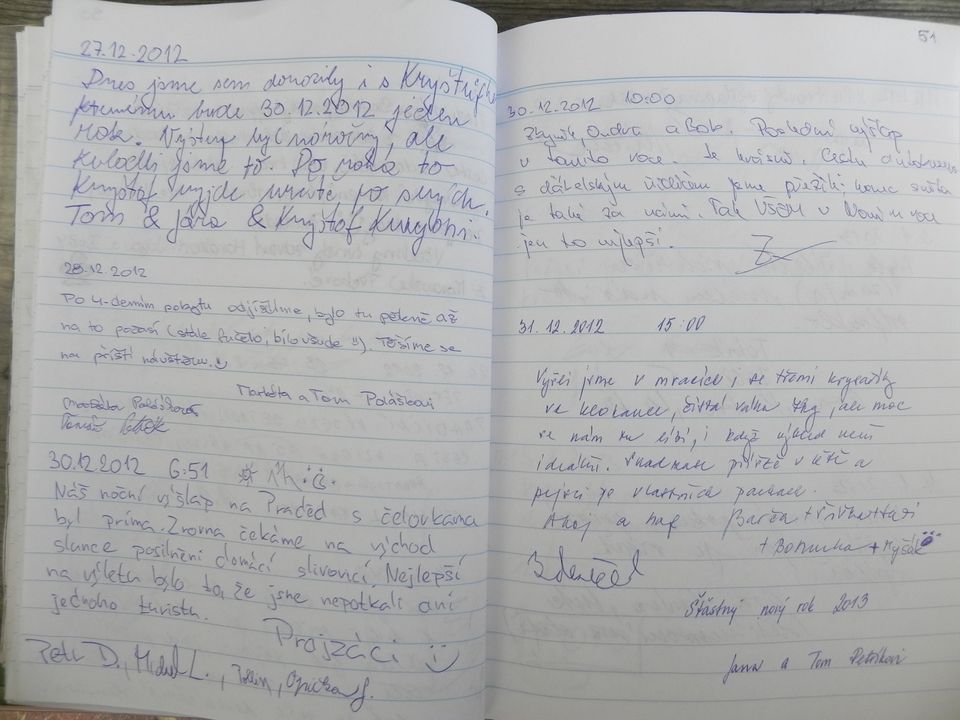 27.12.2012
Dnes jsme sem dorazily i s Kryštůfke
kterému bude 30.12.2012 jeden
rok. Výstup byl náročný, ale
zvládli jsme to. Po roka to
Kryštof vyjde určitě po svých.
Tom & Jára & Kryštof
28.12.2012
Po 4-denním pobytu odjíždíme, bylo tu pěkně až
na to počasí (stále fučelo, bílo všude :)). Těšíme se
na příští návštěvu. :)
Markéta a Tom Poláškovi
Markéta Polášková
Tomáš
30.12.2012 6:51
Náš noční výšlap na Praděd s čelovkama
byl príma. Zrovna čekáme na východ
slunce posilněni domácí slivovicí. Nejlepší
na výletu bylo to, že jsme nepotkali ani
jednoho turistu.
Projzáci :)
Petr D., Michal L.,
51
30.12.2012 10:00
Zbyněk Ondra a Bob. Poslední výšlap
v tomto roce. Je krásně. Cestu autobusem
s ďábelským řidičem jsme přežili, konec světa
je také za námi. Tak VŠEM v Novém roce
jen to nejlepší.
31.12.2012 15:00
Vyšli jsme v mracích, se třemi
ve klokance, živá váha 7kg, ale moc
se nám tu líbí, i když výhled není
ideální. Snad nás příště v létě a
po vlastních packách.
Ahoj a haf Barča +
+ + Myšák
Šťastný nový rok 2013
Jana a Tom